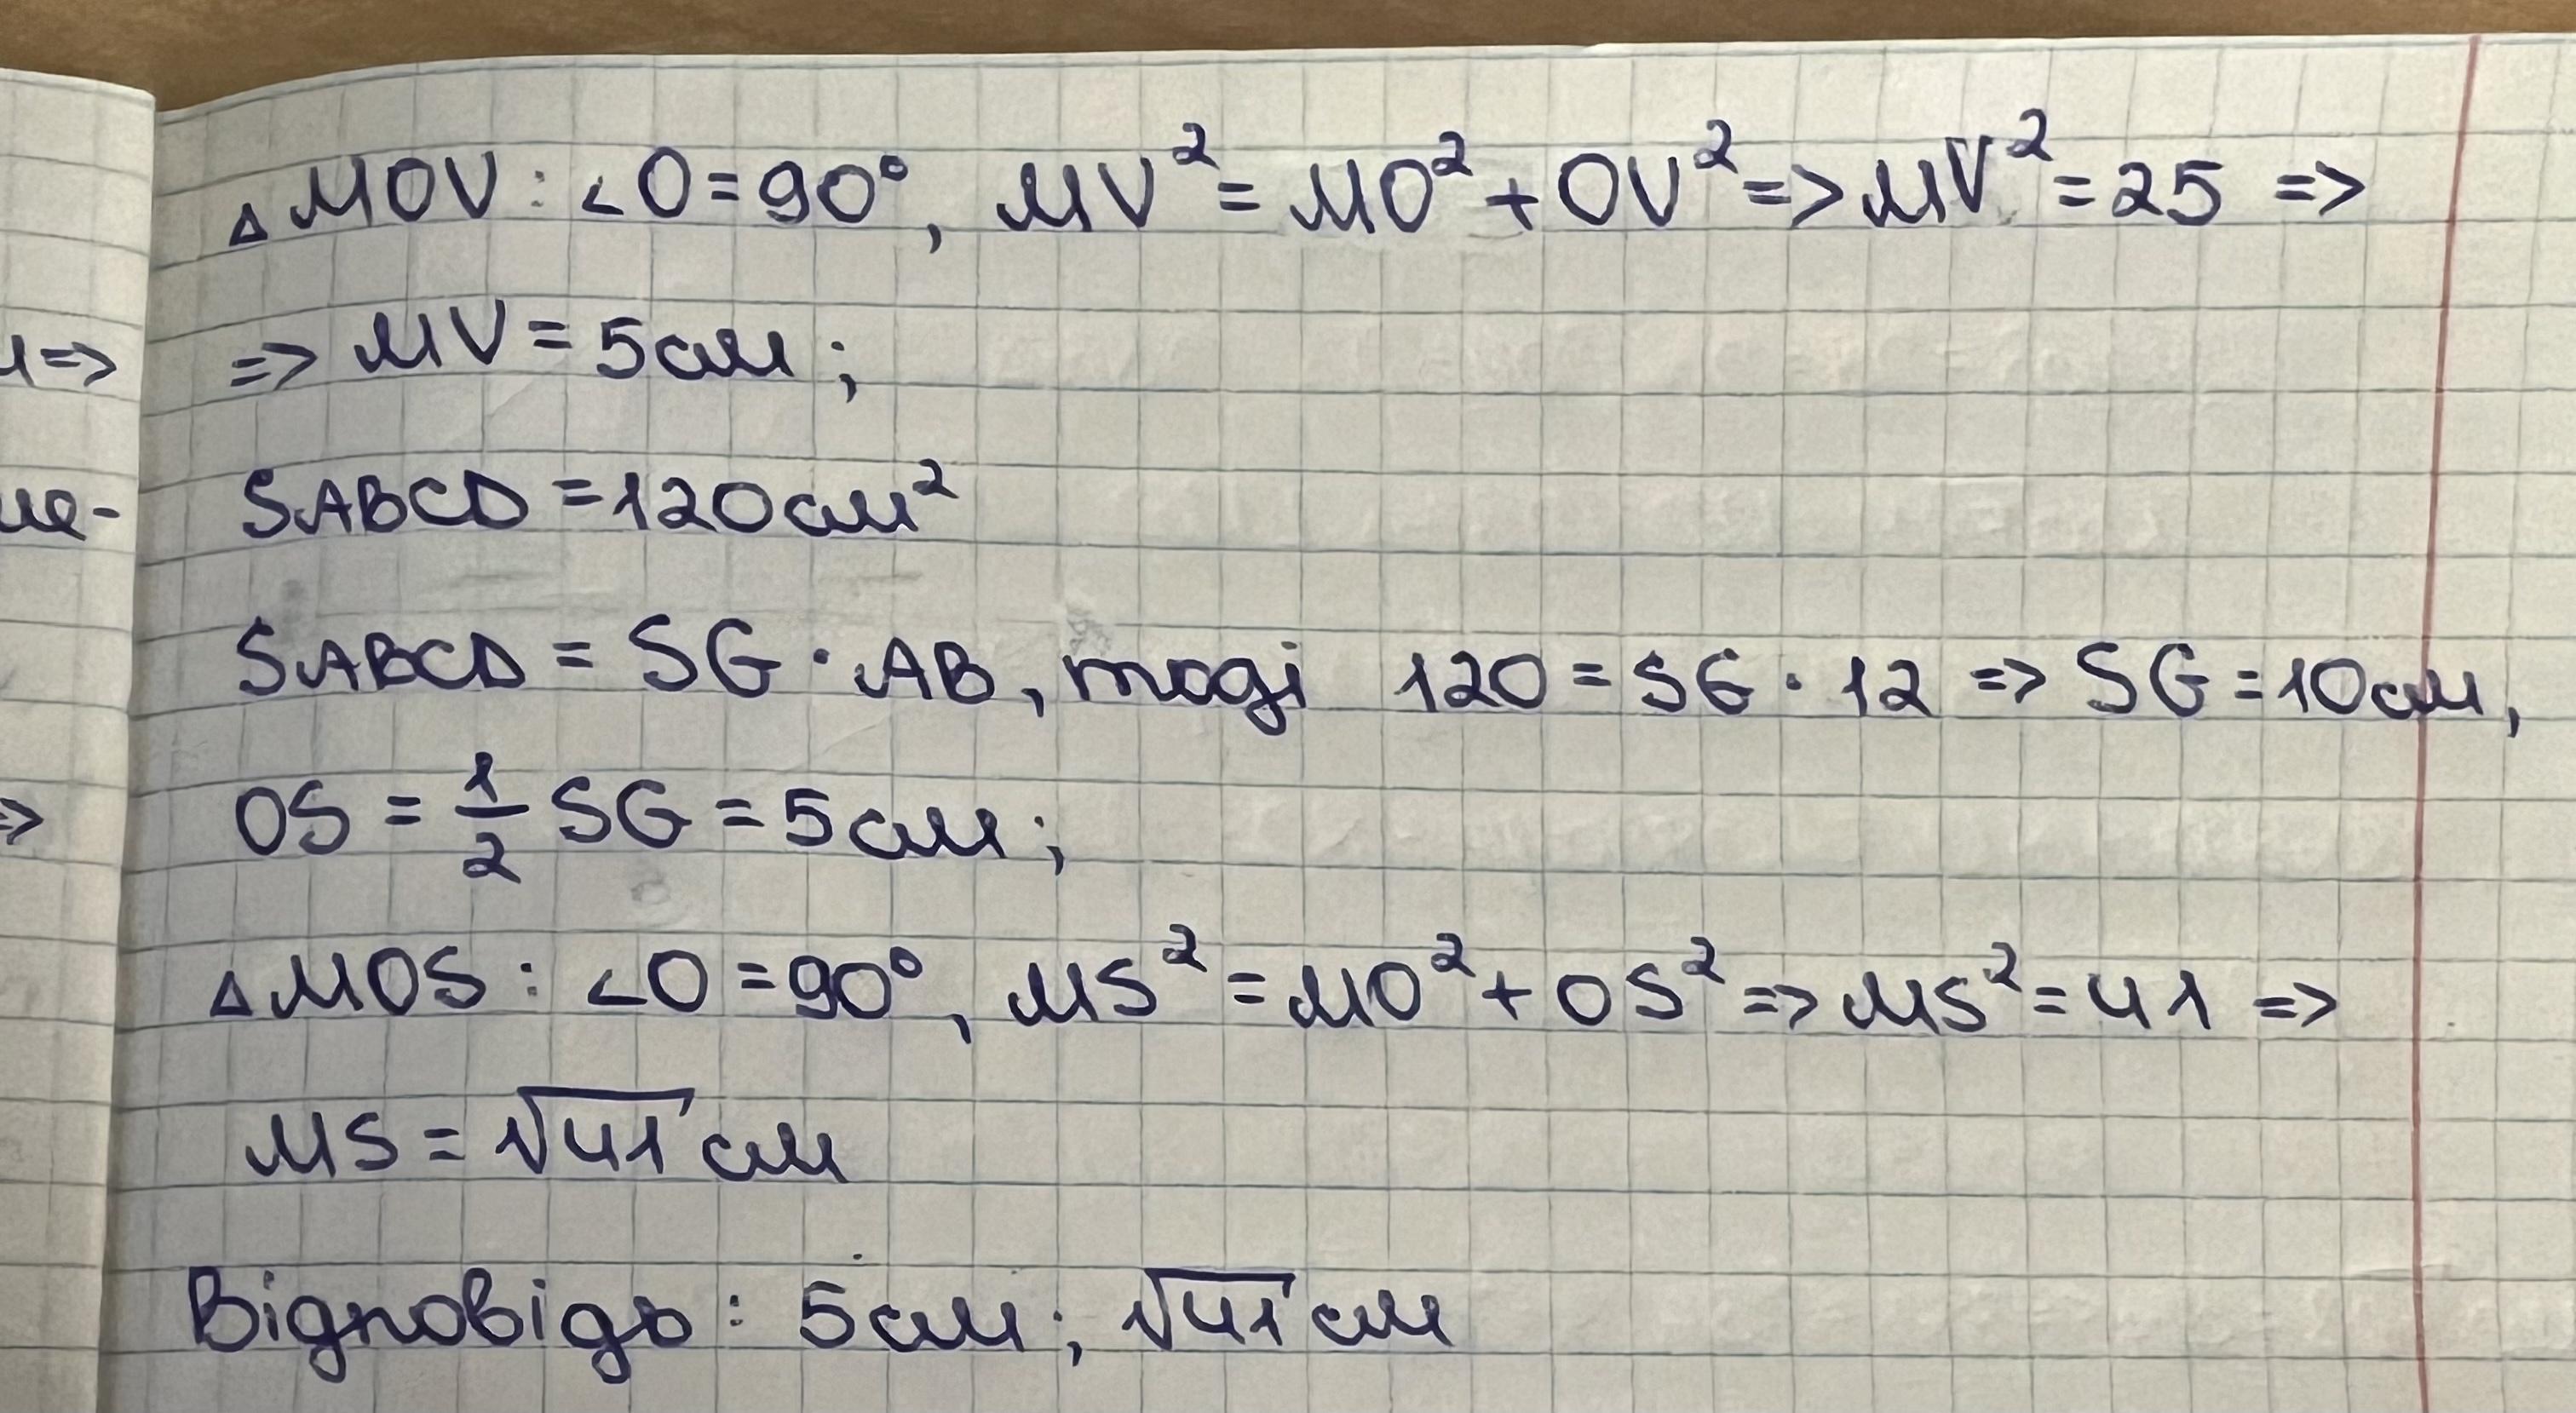 △MOV: ∠O=90°, MV²=MO²+OV²=>MV²=25 =>
=> => MV=5см;
SABCD=120см²
не-
SABCD=SG·AB, тоді 120=SG·12 => SG=10см,
=> OS=1/2 SG=5см;
△MOS: ∠O=90°, MS²=MO²+OS²=>MS²=41 =>
MS=√41 см
Відповідь: 5см; √41 см